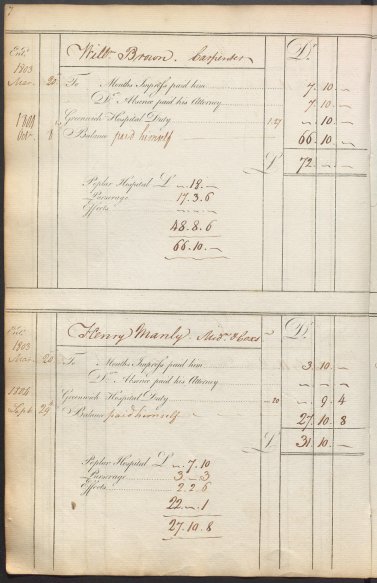 Willm. Brown. Carpenter Dr.
1803
Mar. 20 To Months Imprefs paid him 7.10.~
Do. Absence paid his Attorney 7.10.~
Greenwich Hospital Duty ~.10.~
8 Balance paid himself 66.10.~
£ 72.~
Poplar Hospital £ ~.19.~
Parserage 17.3.6
Effects ~.~.~
48.8.6
66.10.~
Henry Manly. Dr.
1803
Mar. 20 To Months Imprefs paid him 3.10.~
Do. Absence paid his Attorney ~.~.~
1804 Greenwich Hospital Duty 20 ~.9.4
Sept. 29 Balance paid himself 27.10.8
£ 31.10.~
Poplar Hospital £ ~.7.10
Parserage 3.~.3
Effects 2.2.6
22.~.1
27.10.8